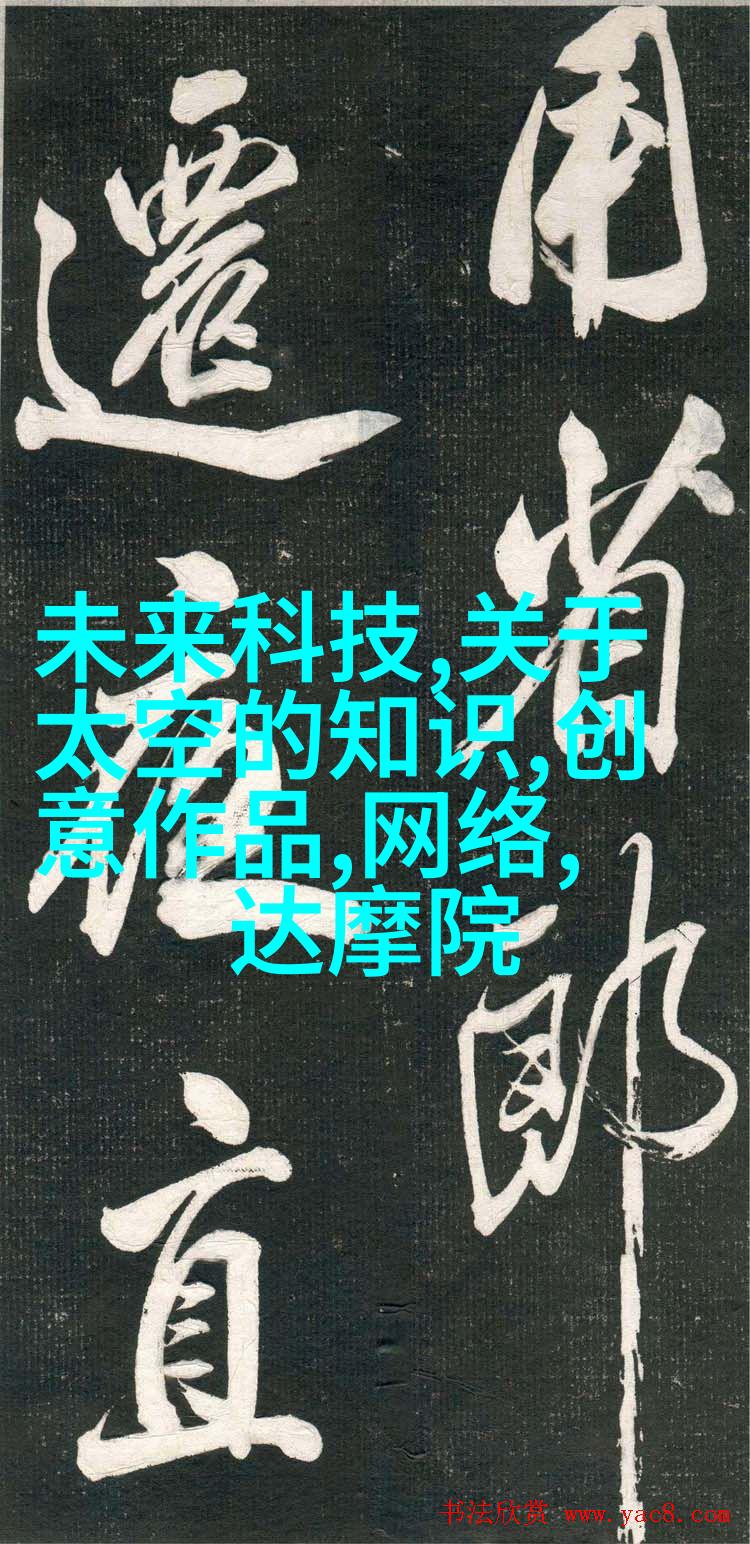 用省郎
遷直
未来科技,关于
太空的知识,创
意作品,网络,
达摩院
书法欣赏 www.yac8.com